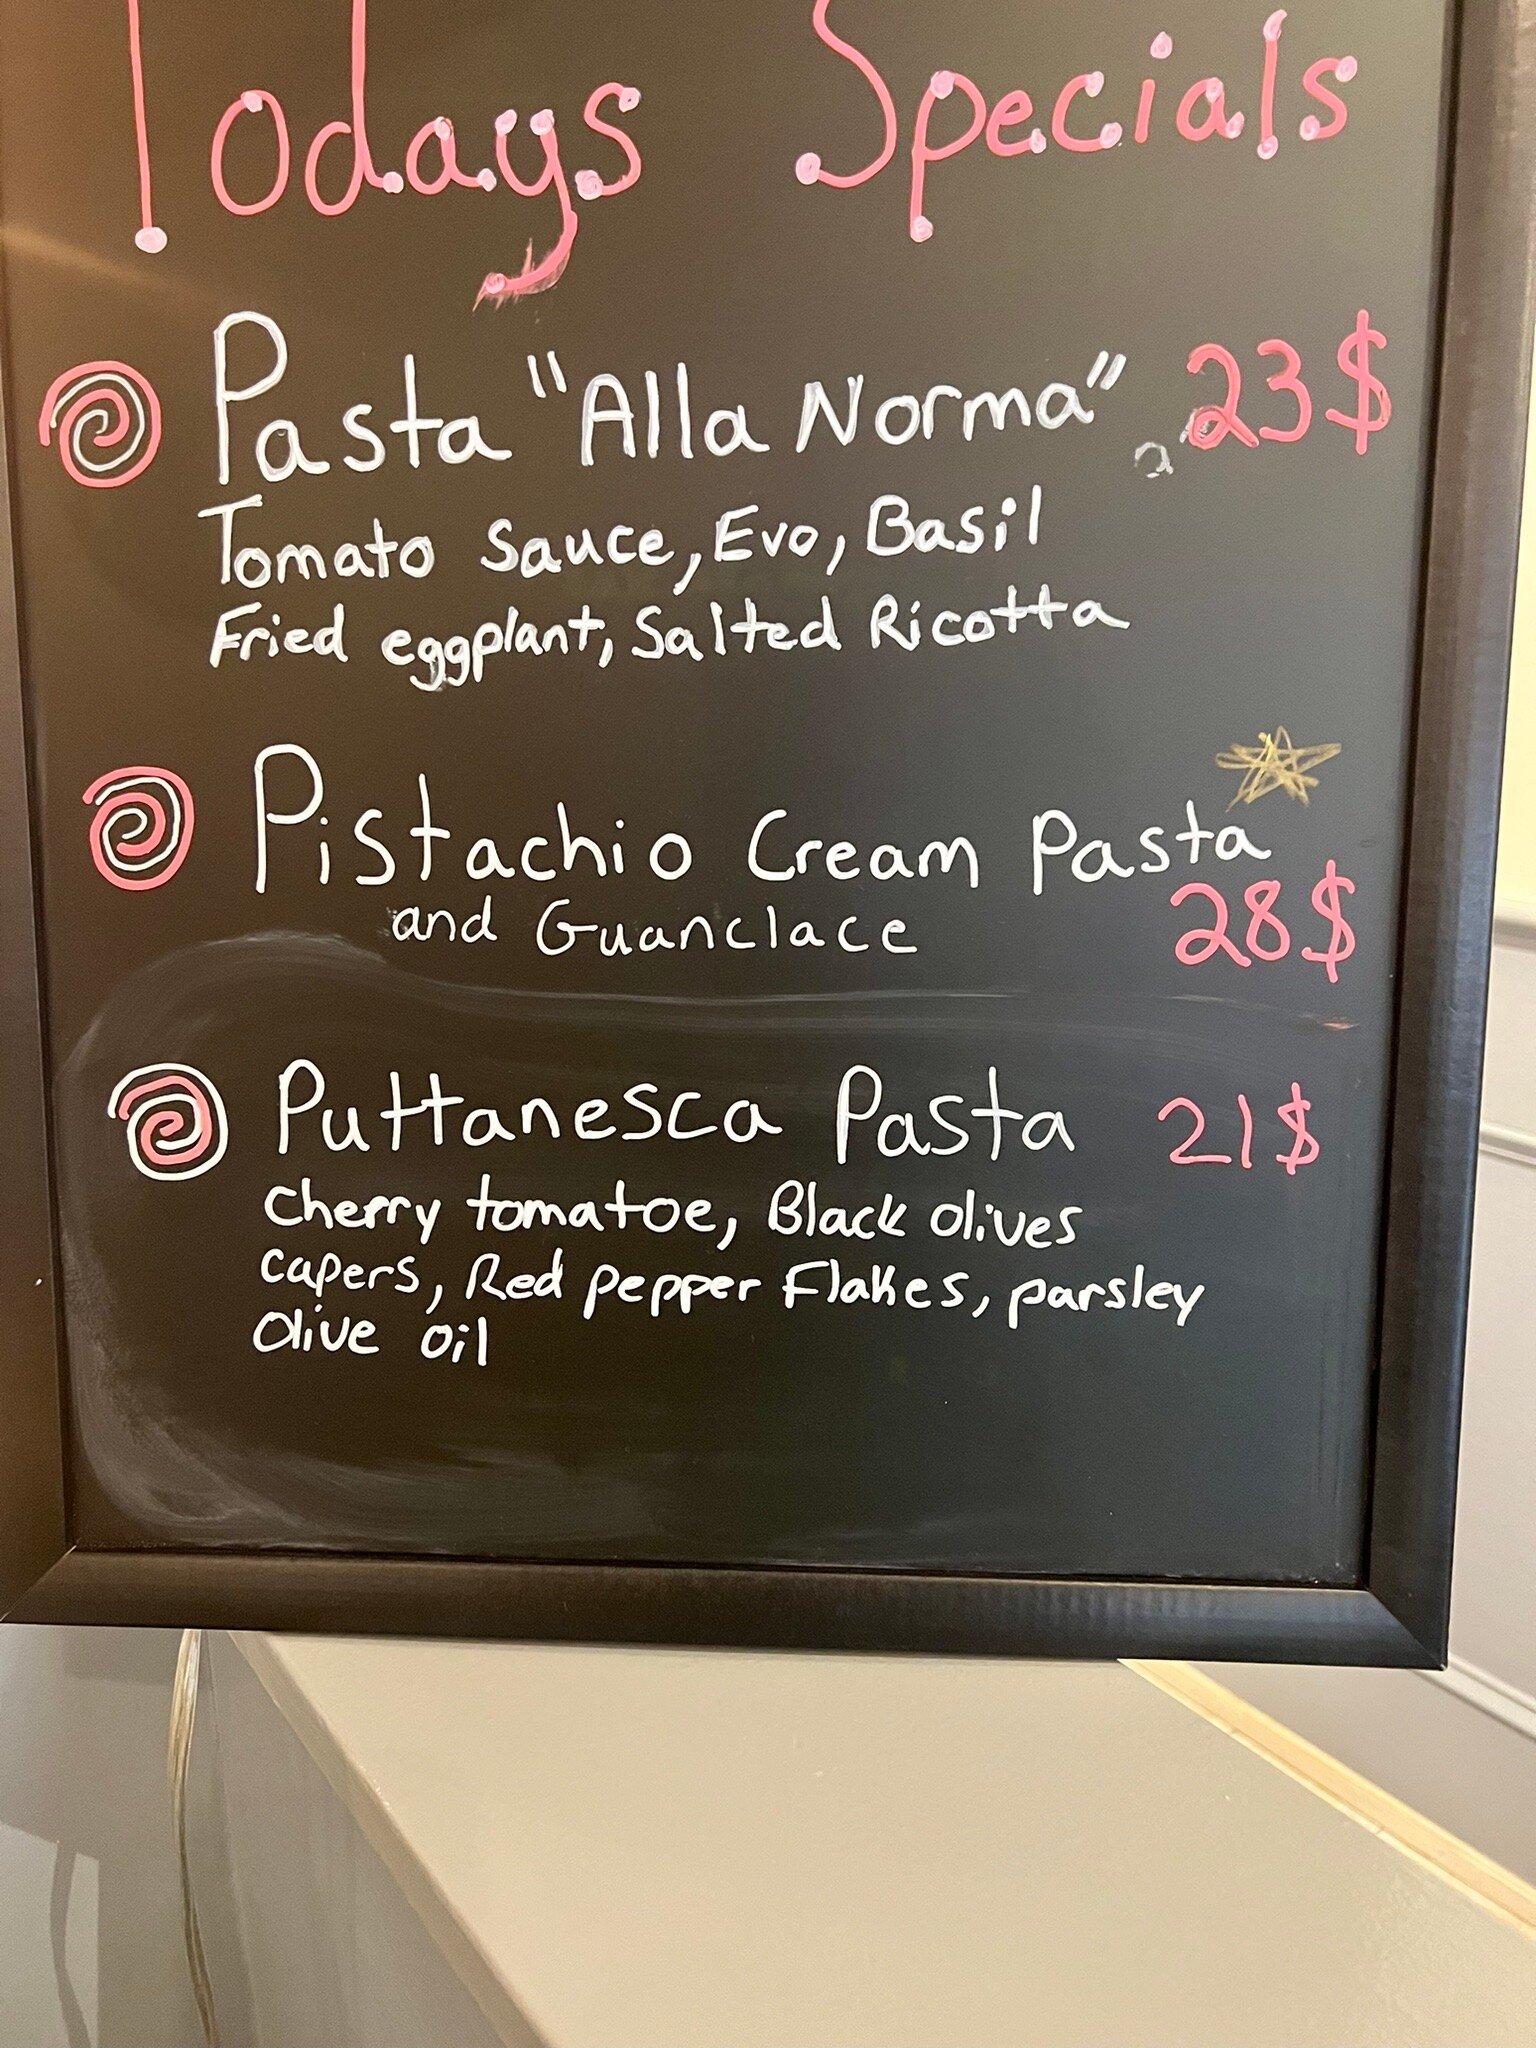 Todays Specials
Pasta "Alla Norma" 23$
Tomato Sauce, Evo, Basil
Fried eggplant, Salted Ricotta
Pistachio Cream Pasta
and Guanclace 28$
Puttanesca Pasta 21$
Cherry tomatoe, Black olives
capers, Red pepper Flakes, parsley
Olive oil